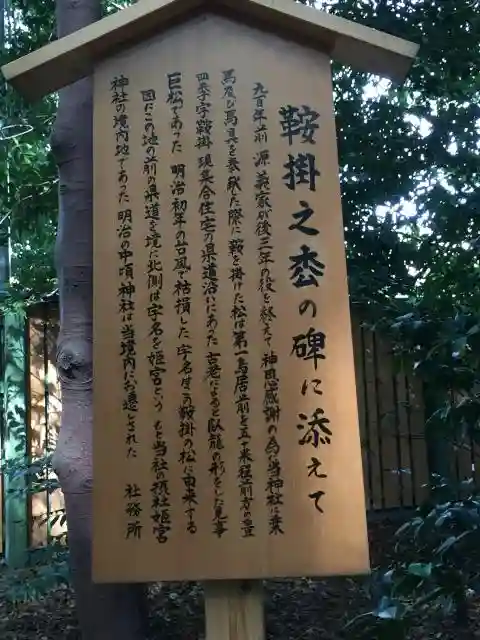 鞍掛之枩の碑に添えて
九百年前 源義家が後三年の役を終えて神恩感謝の為に当神社に乗
馬及び馬具を奉献した際に鞍を掛けた松は第一鳥居前を五十米程前方の豊
四季字鞍掛 現集合住宅の県道沿いにあった 古老によると臥龍の形をした見事
巨松であった 明治初年の台風で枯損した 字名はこの鞍掛の松に由来する
因にこの地の前の県道を境に北側は字名を姫宮という もと当社の摂社姫宮
神社の境内地であった 明治の中頃神社は当境内にお遷しされた
社務所